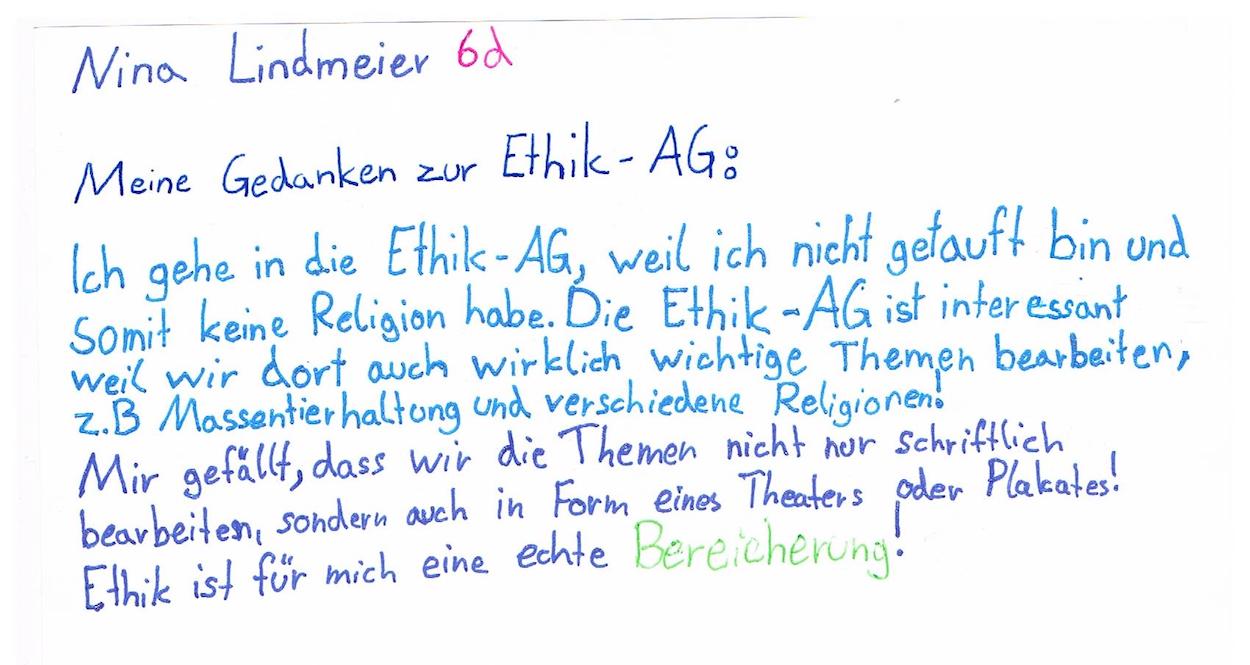 Nina Lindmeier 6d
Meine Gedanken zur Ethik-AG:
Ich gehe in die Ethik-AG, weil ich nicht getauft bin und
Somit keine Religion habe. Die Ethik-AG ist interessant
weil wir dort auch wirklich wichtige Themen bearbeiten,
z.B Massentierhaltung und verschiedene Religionen!
Mir gefällt, dass wir die Themen nicht nur schriftlich
bearbeiten, sondern auch in Form eines Theaters oder Plakates!
Ethik ist für mich eine echte Bereicherung!